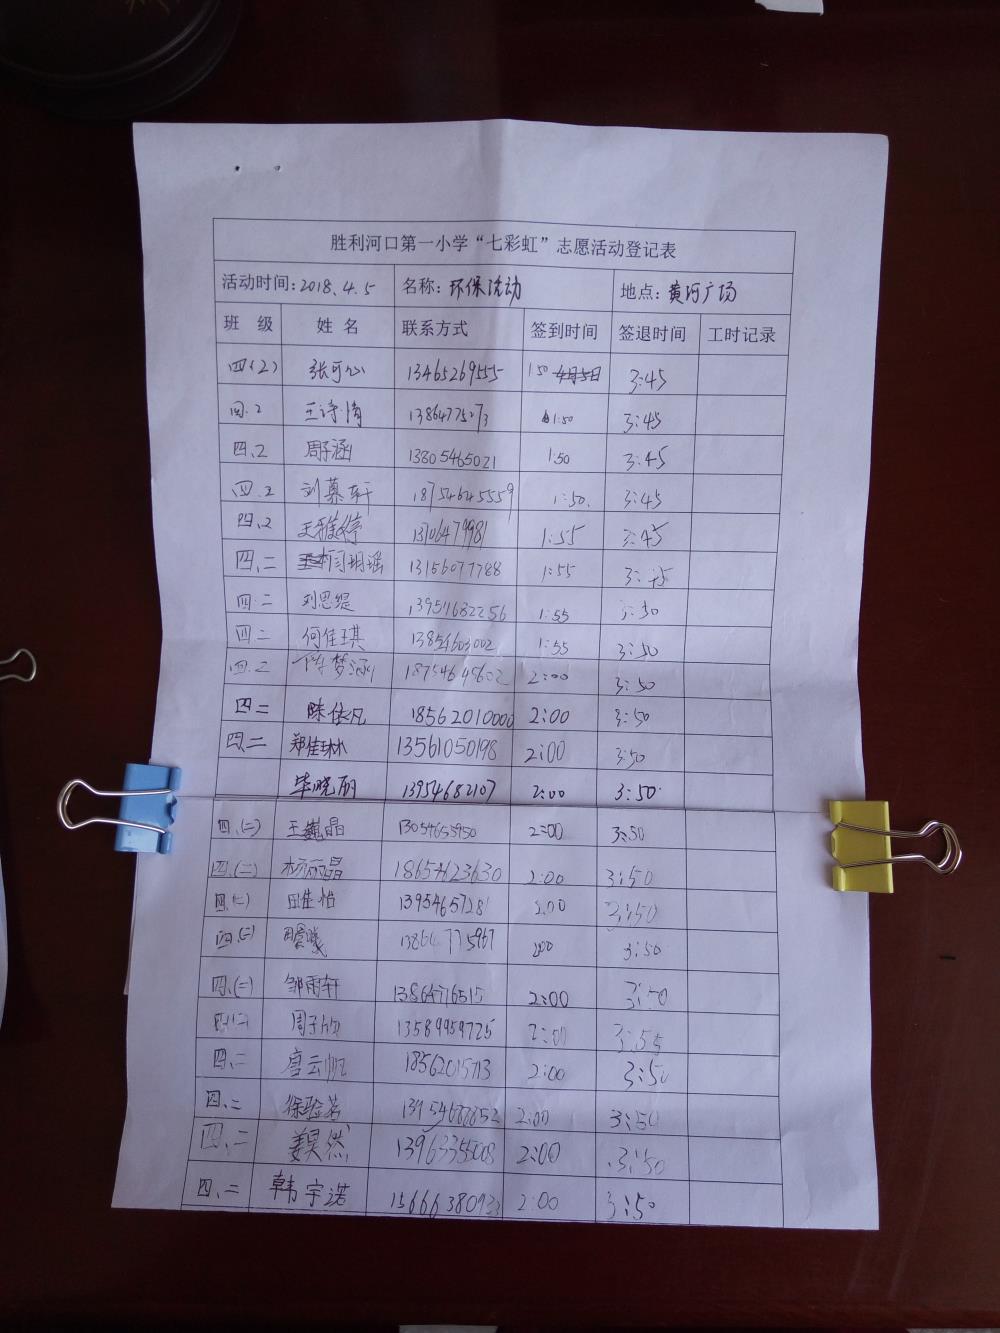 胜利河口第一小学“七彩虹”志愿活动登记表
活动时间:2018.4.5 名称:环保活动 地点:黄河广场
班 级 姓 名 联系方式 签到时间 签退时间 工时记录
四(2) 张可心 13465269555 1:50 3:45
四.2 王诗情 1:50 3:45
四.2 周子涵 13805465021 1:50 3:45
四.2 刘慕轩 18754645559 1:50. 3:45
四.2 王雅婷 1:55 3:45
四.二 13156077788 1:55
四.二 刘思缇 13954682256 1:55 3:50
四二 何佳琪 13854603002 1:55 3:50
四.二 梦涵 2:00 3:50
四二 陈依凡 18562010000 2:00 3:50
四.二 郑佳琳 13561050198 2:00 3:50
毕晓丽 13954682107 2:00 3:50
四.(二) 王巍晶 13054655950 2:00 3:50
四.(二) 杨丽晶 18654623630 2:00 3:50
四.(二) 田雅怡 13954657281 2:00 3:50
四.(二) 2:00 3:50
四.(二) 邹雨轩 13864776515 2:00 3:50
四(二) 周子欣 13589959725 2:00 3:55
四.二 唐云帆 18562015713 2:00 3:50
四.二 2:00 3:50
四.二 姜昊然 13963355008 2:00 3:50
四.二 韩宇诺 2:00 3:50